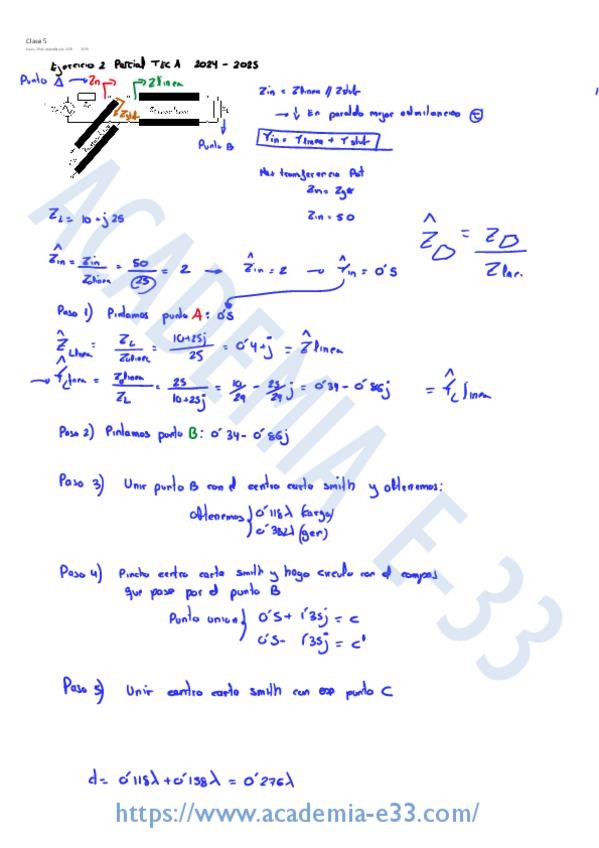 Clase 5
Ejercicio 2 Parcial TECA 2024 - 2025
Punto A → Zin
Zlinea
Zstub
Punto B
Zin = Zlinea // Zstub
1
→ ↓ En paralelo mejor admitancias
Yin = Ylinea + Ystub
Max transferencia Pot
Zin = Zger
Zin = 50
ZL = 10 + j 25
Ẑin = Zin / Zlinea = 50 / 25 = 2 → Ẑin = 2 → Ŷin = 0'5
ẐD = ZD / Zcar.
Paso 1) Pintamos punto A: 0'5
ẐLlinea = ZL / Z0linea = 10+25j / 25 = 0'4+j = Ẑlinea
→ ŶLlinea = Z0linea / ZL = 25 / 10+25j = 10/29 - 25/29 j = 0'34 - 0'86j = ŶLlinea
Paso 2) Pintamos punto B: 0'34 - 0'86j
Paso 3) Unir punto B con el centro carta smith y obtenemos:
obtenemos 0'118λ (carga)
0'382λ (ger)
Paso 4) Pincho centro carta smith y hago circulo con el compas
que pase por el punto B
Punto union 0'5 + 1'35j = C
0'5 - 1'35j = C'
Paso 5) Unir centro carta smith con ese punto C
d = 0'118λ + 0'158λ = 0'276λ
ACADEMIA E-33
https://www.academia-e33.com/